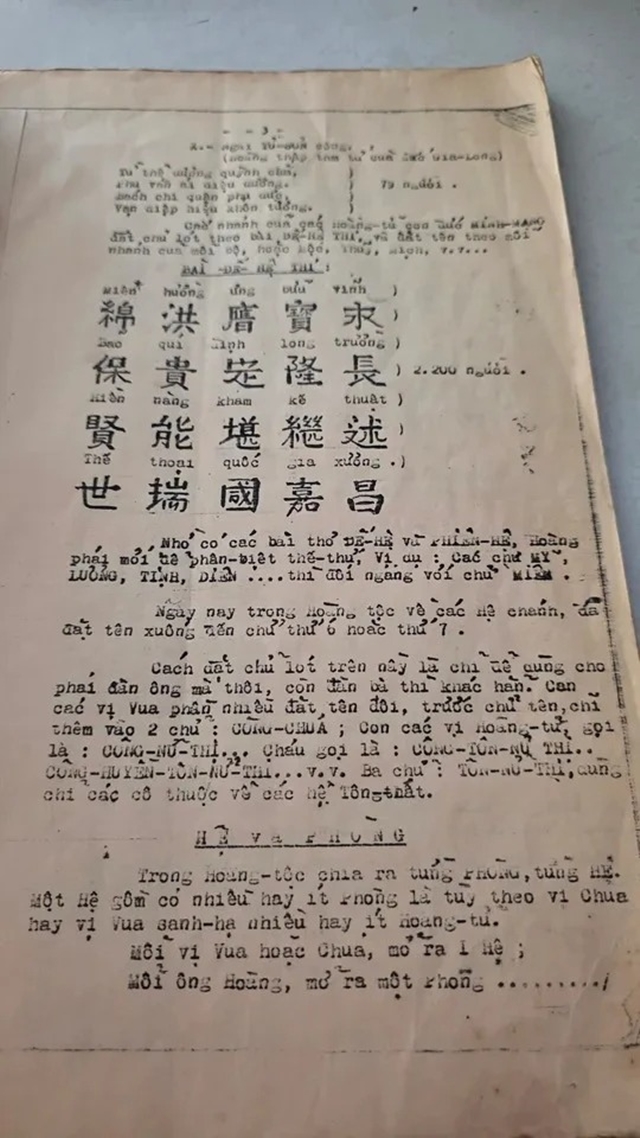 - - 3 -
A.- Ngài TỪ-SƠN Công.
(Hoàng thập tam tử của Đức Gia-Long)
Từ thể dương quỳnh cẩm, )
Phu văn ái diệu dương. ) 79 người .
Bách chi quân phụ ) 
Vạn diệp hiệu khôn tương. )
Các nhánh của các Hoàng-tử con Đức MINH-MẠNG
đặt chữ lót theo bài ĐẾ-HỆ THI, và đặt tên theo mỗi
nhánh của mỗi bộ, hoặc Mộc, Thủy, Mịch, v.v...
BÀI ĐẾ- HỆ THI :
Miên hường ưng bửu vĩnh )
綿 洪 膺 寶 永 )
Bảo quí định long trường )
保 貴 定 隆 長 ) 2.200 người .
Hiền năng kham kế thuật )
賢 能 堪 繼 述 )
Thế thoại quốc gia xương .)
世 瑞 國 嘉 昌
Nhờ có các bài thơ ĐẾ-HỆ và PHIÊN-HỆ, Hoàng
phái mới dễ phân-biệt thế-thứ, Ví dụ : Các chữ MỸ,
LƯƠNG, TỊNH, DIÊN ....thì đối ngang với chữ MIÊN .
Ngày nay trong Hoàng tộc về các Hệ chánh, đã
đặt tên xuống đến chữ thứ 6 hoặc thứ 7 .
Cách đặt chữ lót trên nầy là chỉ để dùng cho
phái đàn ông mà thôi, còn đàn bà thì khác hẳn. Con
các vị Vua phần nhiều đặt tên đôi, trước chữ tên, chỉ
thêm vào 2 chữ : CÔNG-CHÚA ; Con các vị Hoàng-tử, gọi
là : CÔNG-NỮ-THỊ... Cháu gọi là : CÔNG-TÔN-NỮ THỊ..
CÔNG-HUYỀN-TÔN-NỮ-THỊ...v.v. Ba chữ : TÔN-NỮ-THỊ, dùng
chỉ các cô thuộc về các hệ Tôngthất.
HỆ VÀ PHÒNG
Trong Hoàng-tộc chia ra từng PHÒNG, từng HỆ.
Một Hệ gồm có nhiều hay ít Phòng là tùy theo vị Chúa
hay vị Vua sanh-hạ nhiều hay ít Hoàng-tử.
Mỗi vị Vua hoặc Chúa, mở ra 1 Hệ ;
Mỗi ông Hoàng, mở ra một Phòng ........./